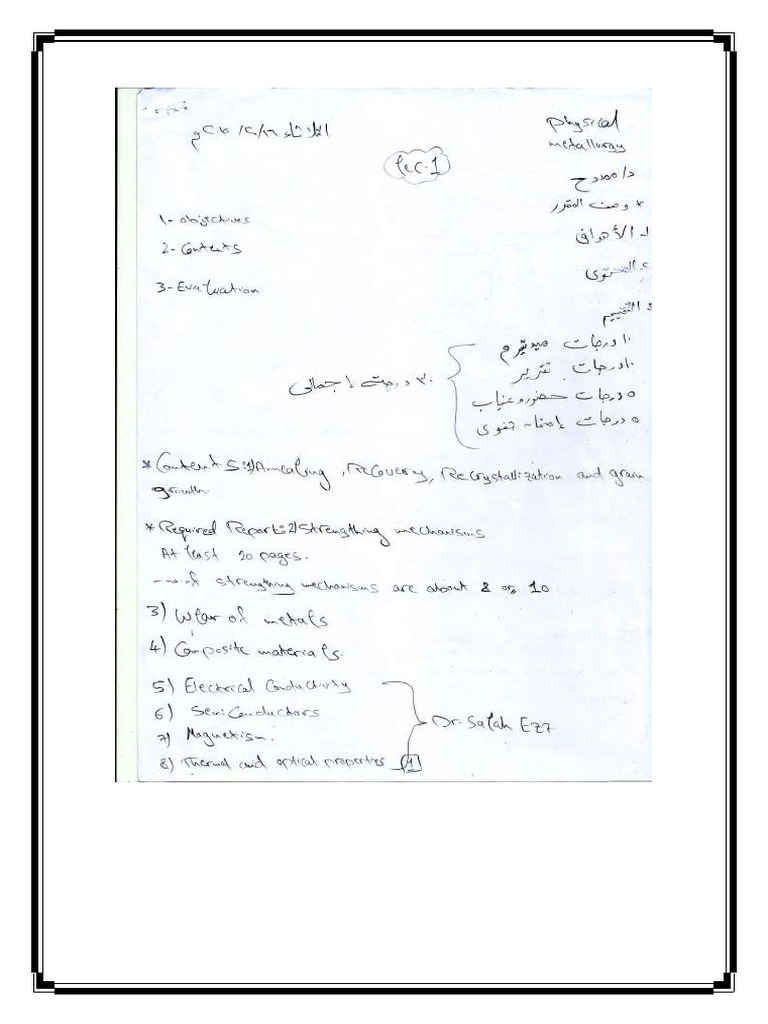 Physical
metallurgy
الثلاثاء
Lec.1
د/ ممدوح
* وصف المقرر
1- objectives
١- الأهداف
2- Contents
٢- المحتوى
3- Evaluation
٣- التقييم
١٠ درجات ميدتيرم
١٠ درجات تقرير
٥ درجات حضور وغياب
٥ درجات إمتحان شفوى
٣٠ درجة إجمالى
* Contents: 1) Annealing, Recovery, Recrystallization and grain
growth.
* Required Report: 2) Strengthing mechanisms
At least 20 pages.
- no. of strengthing mechanisms are about 8 or 10
3) Wear of metals
4) Composite materials.
5) Electrical Conductivity
6) Semiconductors
7) Magnetism.
8) Thermal and optical properties
Dr. Salah Ezz
1